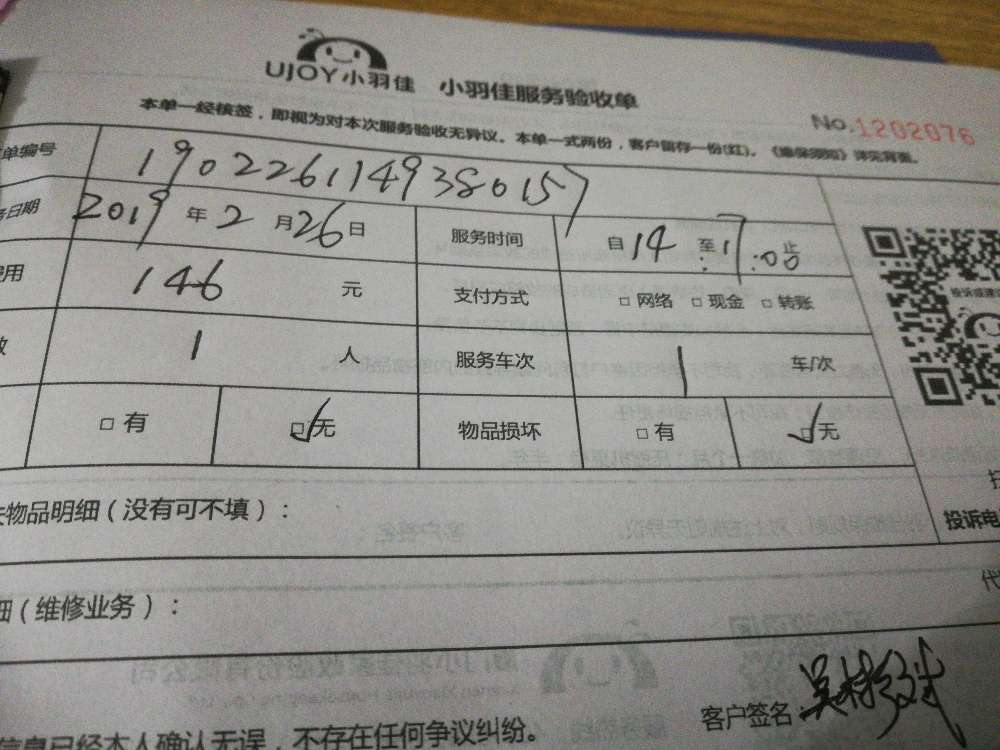 UJOY小羽佳 小羽佳服务验收单
No.1202076
本单一经核签，即视为对本次服务验收无异议。本单一式两份，客户留存一份(红)。《维保须知》详见背面。
单编号 1902261149380157
日期 2019年2月26日 服务时间 自14至17:00止
费用 146元 支付方式 □网络 □现金 □转账
数 1人 服务车次 1车/次
□有 ☑无 物品损坏 □有 ☑无
物品明细（没有可不填）：
投诉电
细（维修业务）：
代
客户签名：
信息已经本人确认无误，不存在任何争议纠纷。